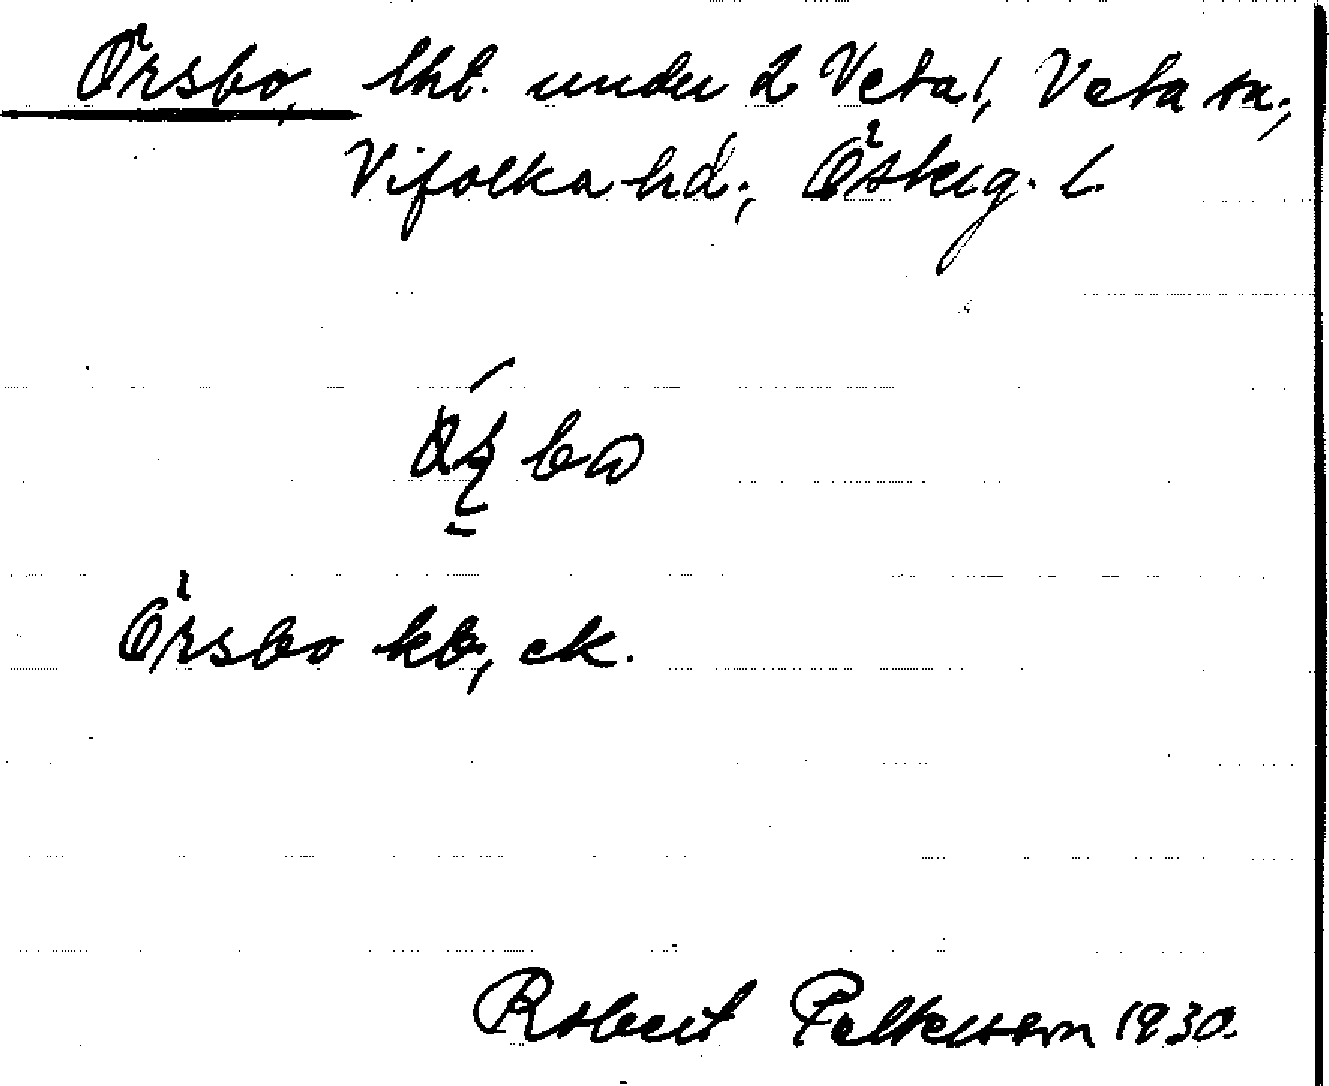 Örsbo, lht. under 2 Veta!, Veta sn.,
Vifolka hd., Österg. l.
Örsbo kb, ek.
Robert Pettersson 1930.